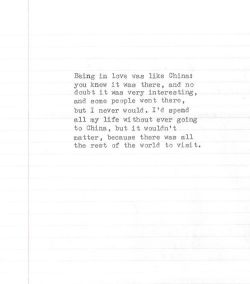 Being in love was like China:
you knew it was there, and no
doubt it was very interesting,
and some people went there,
but I never would. I'd spend
all my life without ever going
to China, but it wouldn't
matter, because there was all
the rest of the world to visit.